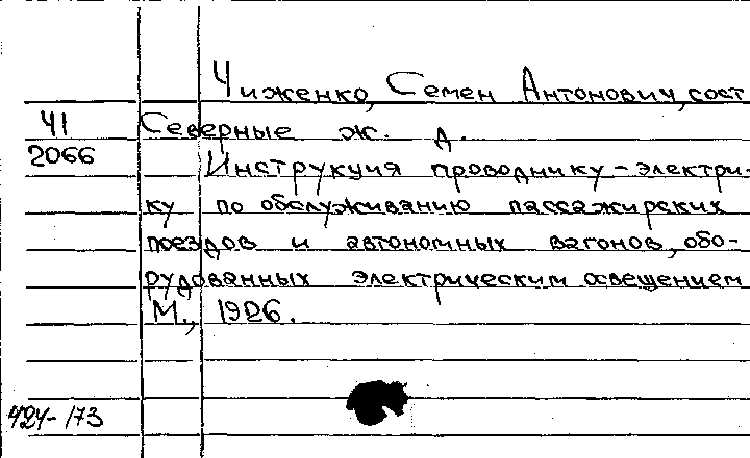 Чиженко, Семен Антонович, сост
Ч1 Северные ж. д.
2066 Инструкция проводнику-электри-
ку по обслуживанию пассажирских
поездов и автономных вагонов, обо-
рудованных электрическим освещением
М., 1926.
424-173